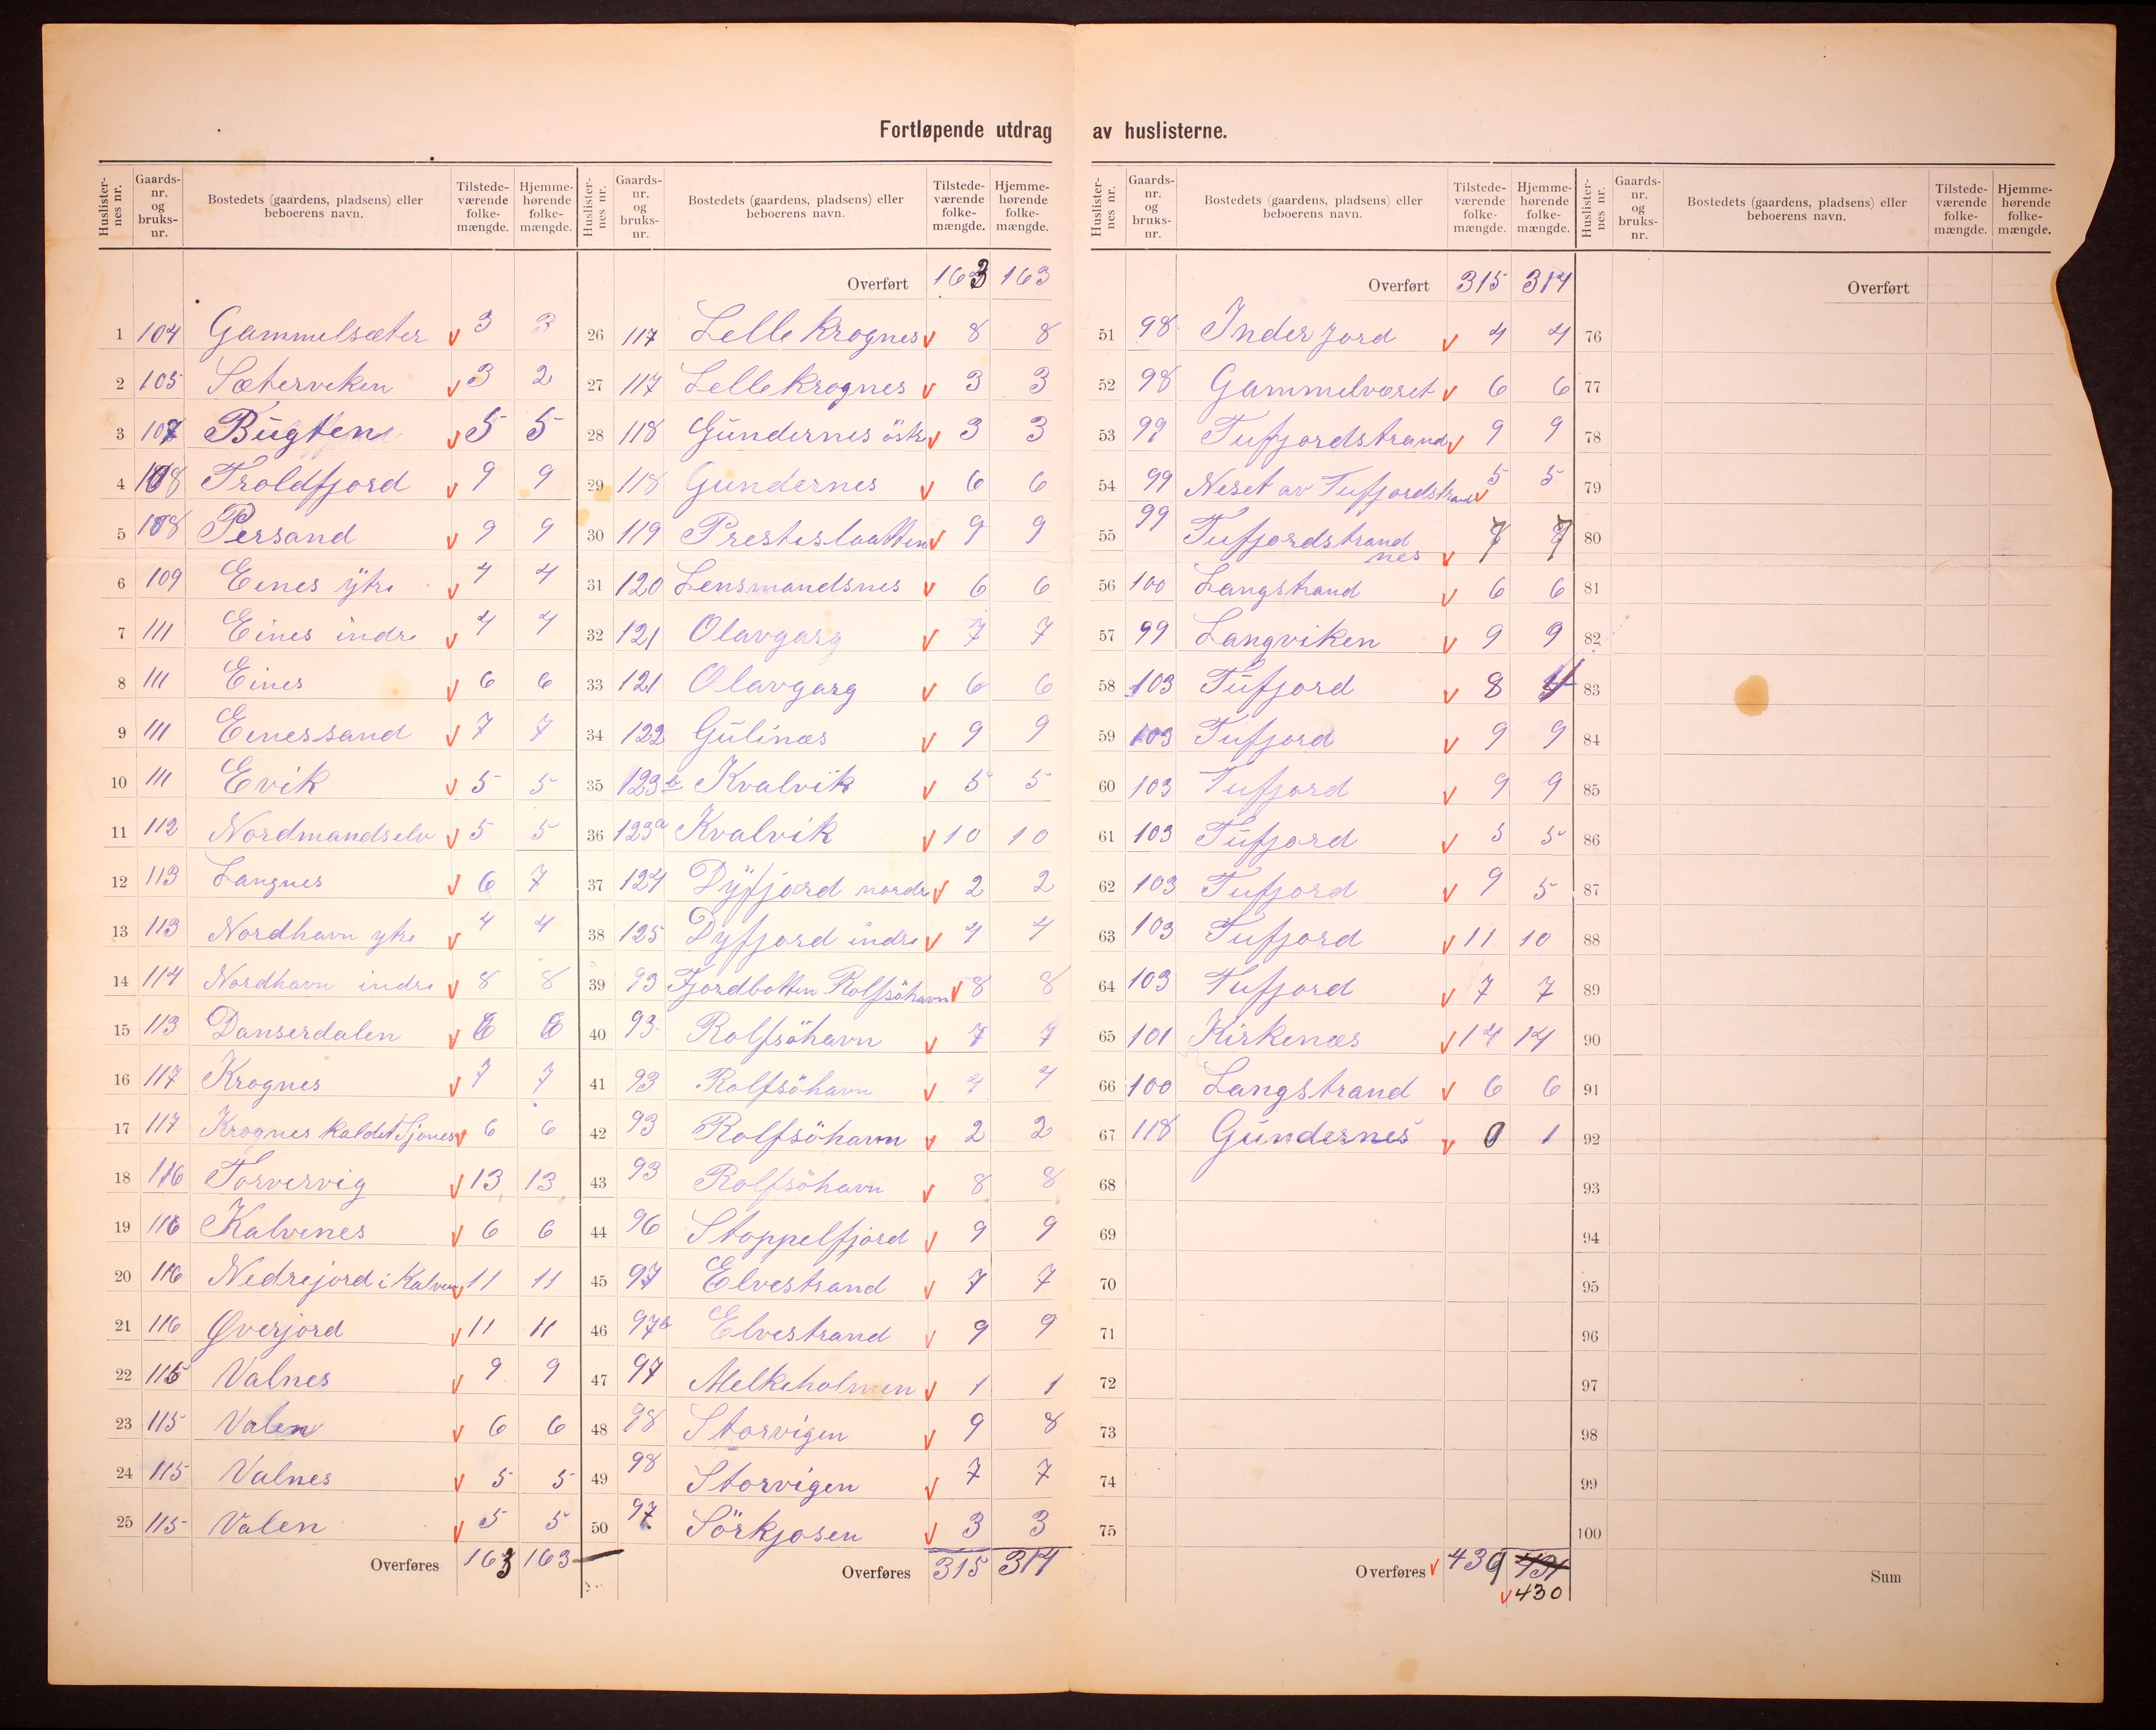 Fortløpende utdrag av huslisterne.
Huslister-nes nr. Gaards-nr. og bruks-nr. Bostedets (gaardens, pladsens) eller beboerens navn. Tilstede-værende folke-mængde. Hjemme-hørende folke-mængde.
1 104 Gammelsæter v 3 3
2 105 Sæterviken v 3 2
3 107 Bugten v 5 5
4 108 Troldfjord v 9 9
5 108 Persand v 9 9
6 109 Eines ytre v 4 4
7 111 Eines indre v 4 4
8 111 Eines v 6 6
9 111 Einessand v 7 7
10 111 Evik v 5 5
11 112 Nordmandselv v 5 5
12 113 Langnes v 6 7
13 113 Nordhavn ytre v 4 4
14 114 Nordhavn indre v 8 8
15 113 Danserdalen v 6 6
16 117 Krognes v 7 7
17 117 Krognes kaldet Sjønes v 6 6
18 116 Torvervig v 13 13
19 116 Kalvenes v 6 6
20 116 Nedrejord i Kalvenes v 11 11
21 116 Øverjord v 11 11
22 115 Valnes v 9 9
23 115 Valen v 6 6
24 115 Valnes v 5 5
25 115 Valen v 5 5
Overføres 163 163
Huslister-nes nr. Gaards-nr. og bruks-nr. Bostedets (gaardens, pladsens) eller beboerens navn. Tilstede-værende folke-mængde. Hjemme-hørende folke-mængde.
Overført 163 163
26 117 Lelle Krognes v 8 8
27 117 Lelle Krognes v 3 3
28 118 Gundernes östr v 3 3
29 118 Gundernes v 6 6
30 119 Presteslaatten v 9 9
31 120 Lensmandsnes v 6 6
32 121 Olavgarg v 7 7
33 121 Olavgarg v 6 6
34 122 Gulinæs v 9 9
35 123b Kvalvik v 5 5
36 123a Kvalvik v 10 10
37 124 Dyfjord nordr v 2 2
38 125 Dyfjord indre v 4 4
39 93 Fjordbotten Rolfsöhavn v 8 8
40 93 Rolfsöhavn v 7 7
41 93 Rolfsöhavn v 4 4
42 93 Rolfsöhavn v 2 2
43 93 Rolfsöhavn v 8 8
44 96 Stoppelfjord v 9 9
45 97 Elvestrand v 7 7
46 97b Elvestrand v 9 9
47 97 Melkeholmen v 1 1
48 98 Storvigen v 9 8
49 98 Storvigen v 7 7
50 97 Sörkjosen v 3 3
Overføres 315 314
Huslister-nes nr. Gaards-nr. og bruks-nr. Bostedets (gaardens, pladsens) eller beboerens navn. Tilstede-værende folke-mængde. Hjemme-hørende folke-mængde.
Overført 315 314
51 98 Inderjord v 4 4
52 98 Gammelværet v 6 6
53 99 Tufjordstrand v 9 9
54 99 Neset av Tufjordstrand v 5 5
55 99 Tufjordstrand nes v 7 7
56 100 Langstrand v 6 6
57 99 Langviken v 9 9
58 103 Tufjord v 8 4
59 103 Tufjord v 9 9
60 103 Tufjord v 9 9
61 103 Tufjord v 5 5
62 103 Tufjord v 9 5
63 103 Tufjord v 11 10
64 103 Tufjord v 7 7
65 101 Kirkenæs v 14 14
66 100 Langstrand v 6 6
67 118 Gundernes v 0 1
68
69
70
71
72
73
74
75
Overføres v 439 431
v 430
Huslister-nes nr. Gaards-nr. og bruks-nr. Bostedets (gaardens, pladsens) eller beboerens navn. Tilstede-værende folke-mængde. Hjemme-hørende folke-mængde.
Overført
76
77
78
79
80
81
82
83
84
85
86
87
88
89
90
91
92
93
94
95
96
97
98
99
100
Sum